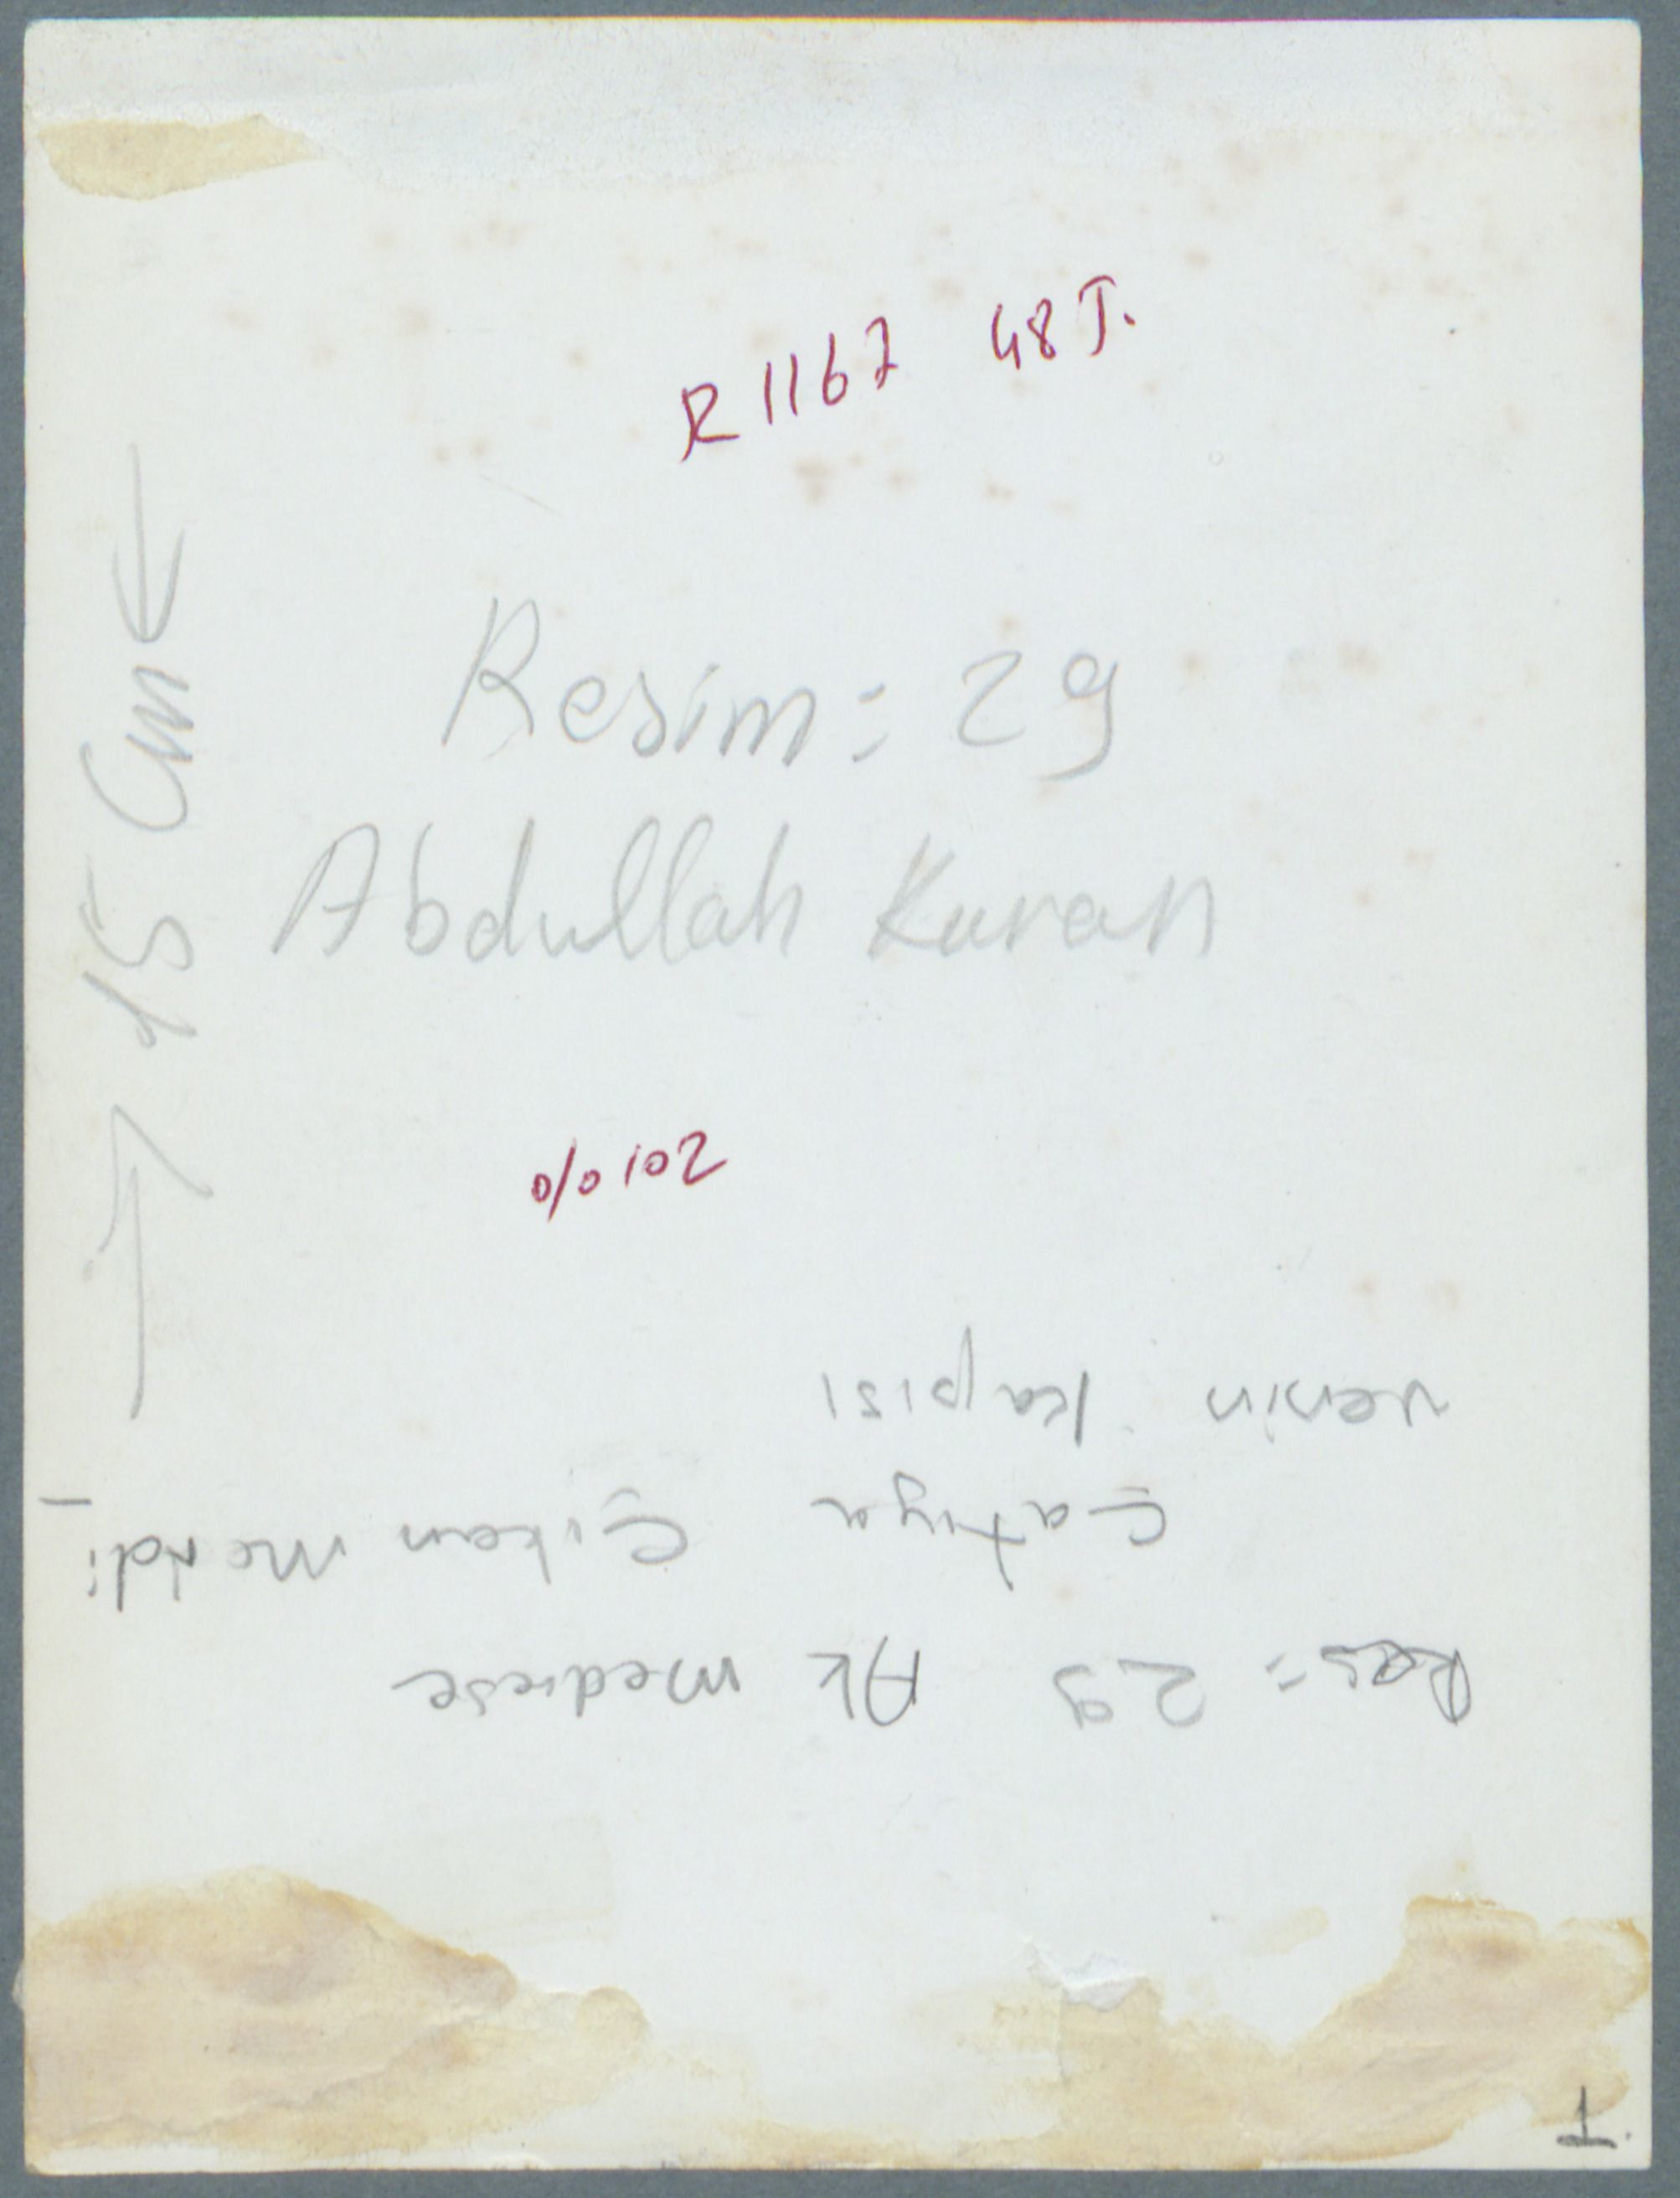 R 1167 48 J.
Resim = 29
Abdullah Kuran
→ 15 Cm ←
% 102
Res = 29 Ak medrese
Çatıya Çıkan merdi-
venin kapısı
1.